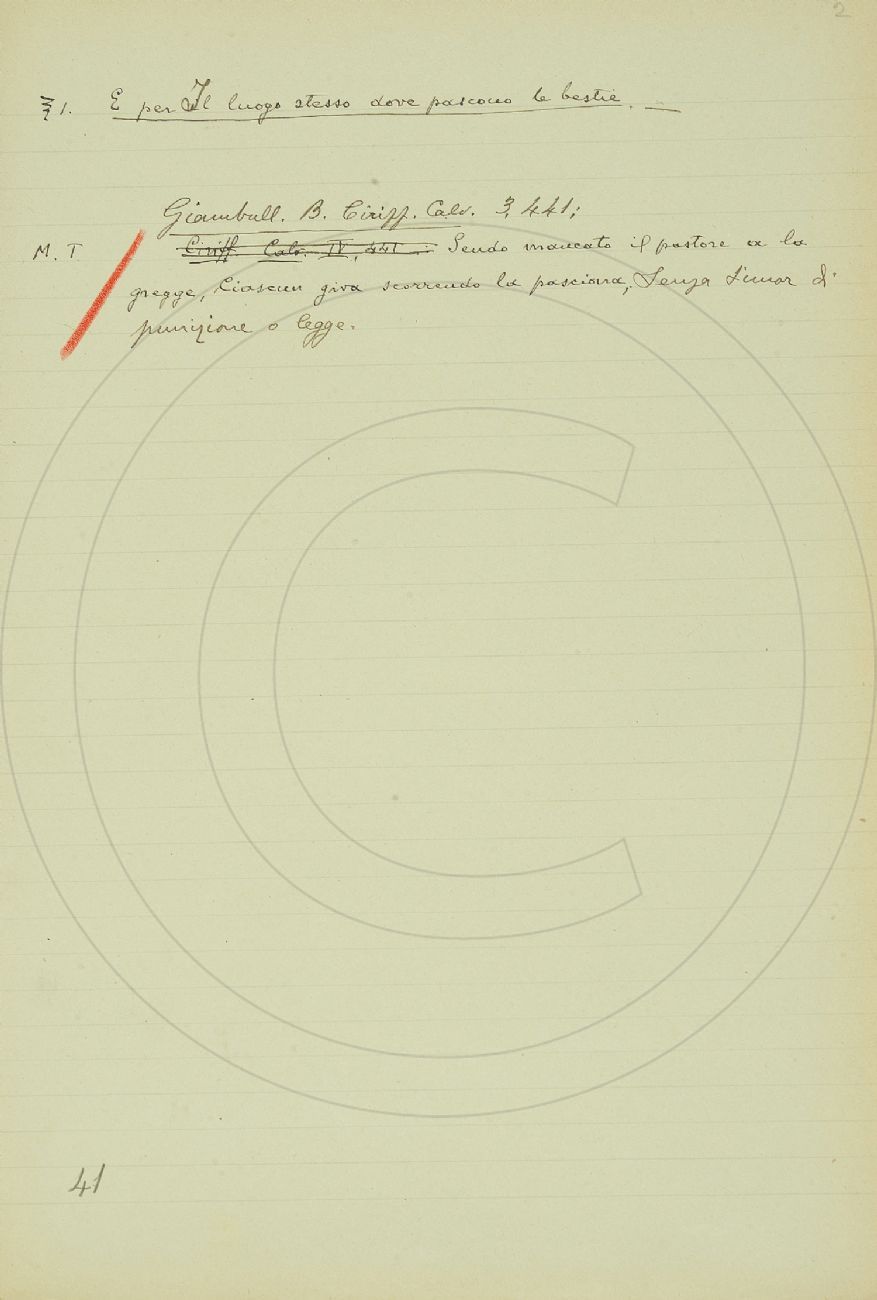 2
§ 1. E per Il luogo stesso dove pascono le bestie. —
Giambull. B. Ciriff. Calv. 3, 441;
M. T Ciriff. Calv. IV, 441: Sendo mancato il pastore a la
gregge, Ciascun giva scorrendo la pasciona, Senza timor di
punizione o legge.
41